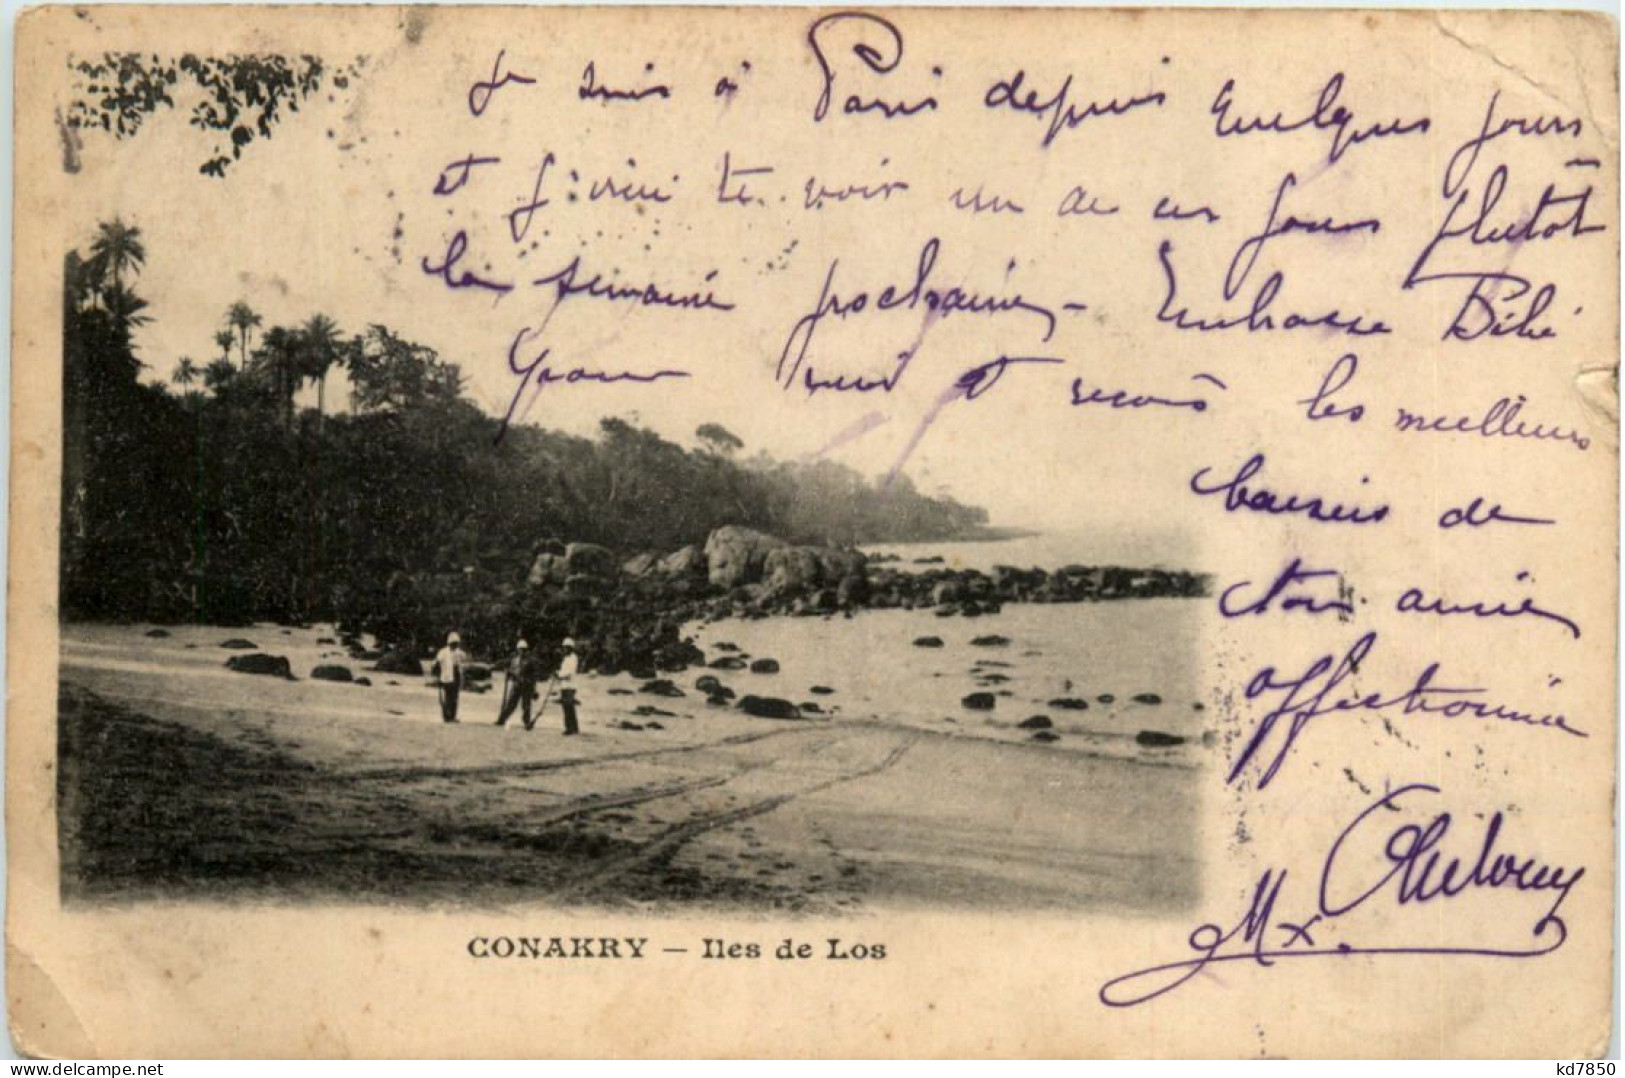 Je suis à Paris depuis quelques jours
et j'irai te voir un de ces jours plutôt
la semaine prochaine - Embrasse Bébé
pour moi et reçois les meilleurs
baisers de
ton amie
affectionnée
CONAKRY — Iles de Los
delcampe.net
kd7850